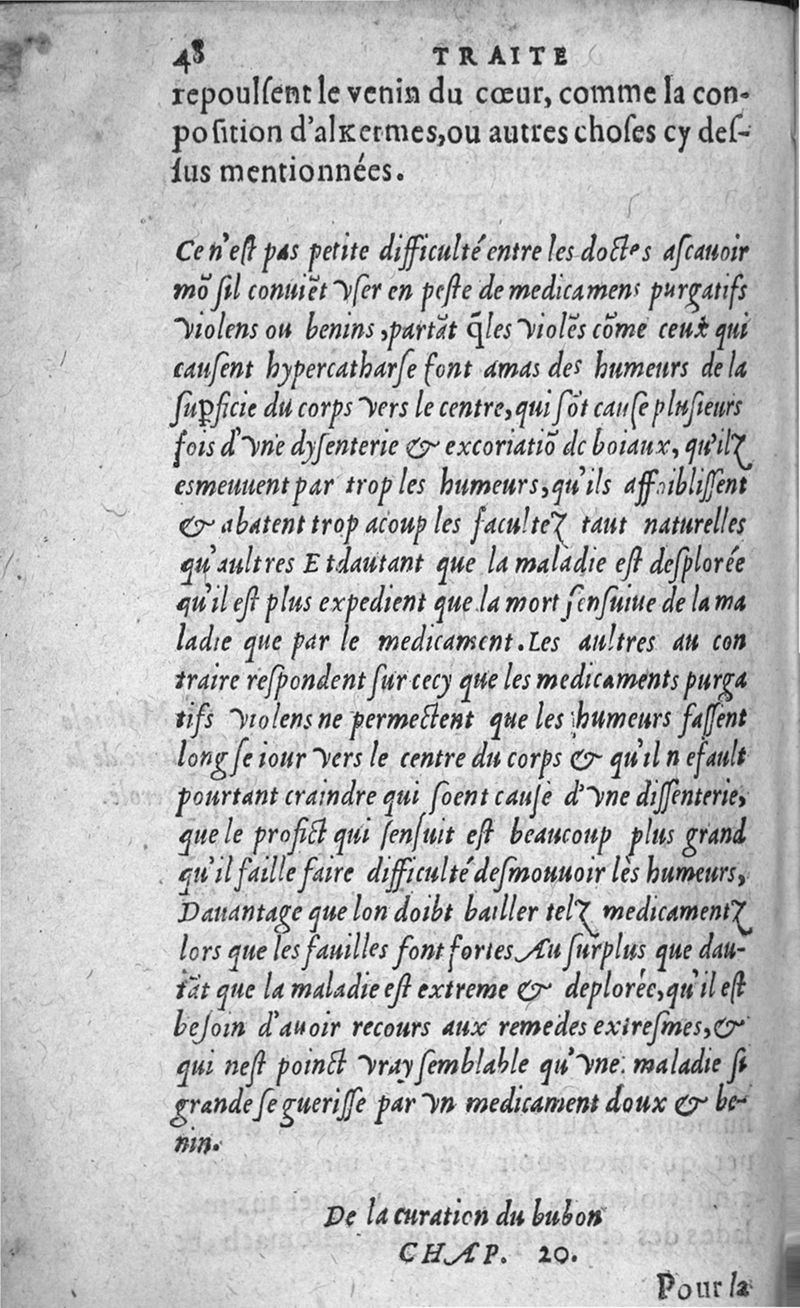 48 TRAITE
repoulſent le venin du cœur, comme la con-
poſition d'alkermes,ou autres choſes cy deſ-
ſus mentionnées.
Ce n'eſt pas petite difficulté entre les doctes aſcauoir
mõ ſil conuiẽt vſer en peſte de medicamens purgatifs
violens ou benins ,partãt q̃ les violẽs cõme ceux qui
cauſent hypercatharſe font amas des humeurs de la
ſuꝑficie du corps vers le centre,qui ſõt cauſe pluſieurs
fois d'vne dyſenterie & excoriatiõ de boiaux, qu'ilz
esmeuuent par trop les humeurs,qu'ils affoibliſſent
& abatent trop acoup les facultez taut naturelles
qu'aultres Et dautant que la maladie eſt deſplorée
qu'il eſt plus expedient que la mort ſenſuiue de la ma
ladie que par le medicament.Les aultres au con
traire reſpondent ſur cecy que les medicaments purga
tifs violens ne permectent que les humeurs faſſent
long ſe iour vers le centre du corps & qu'il n efault
pourtant craindre qui ſoent cauſe d'vne diſſenterie,
que le profict qui ſenſuit eſt beaucoup plus grand
qu'il faille faire difficulté deſmouuoir les humeurs,
Dauantage que lon doibt bailler telz medicamentz
lors que les fauilles font fortes Au ſurplus que dau-
tãt que la maladie eſt extreme & deplorée,qu'il eſt
beſoin d'auoir recours aux remedes extreſmes,&
qui neſt poinct vray ſemblable qu'vne maladie ſi
grande ſe gueriſſe par vn medicament doux & be-
nin.
De la curation du bubon
CHAP. 20.
Pour la